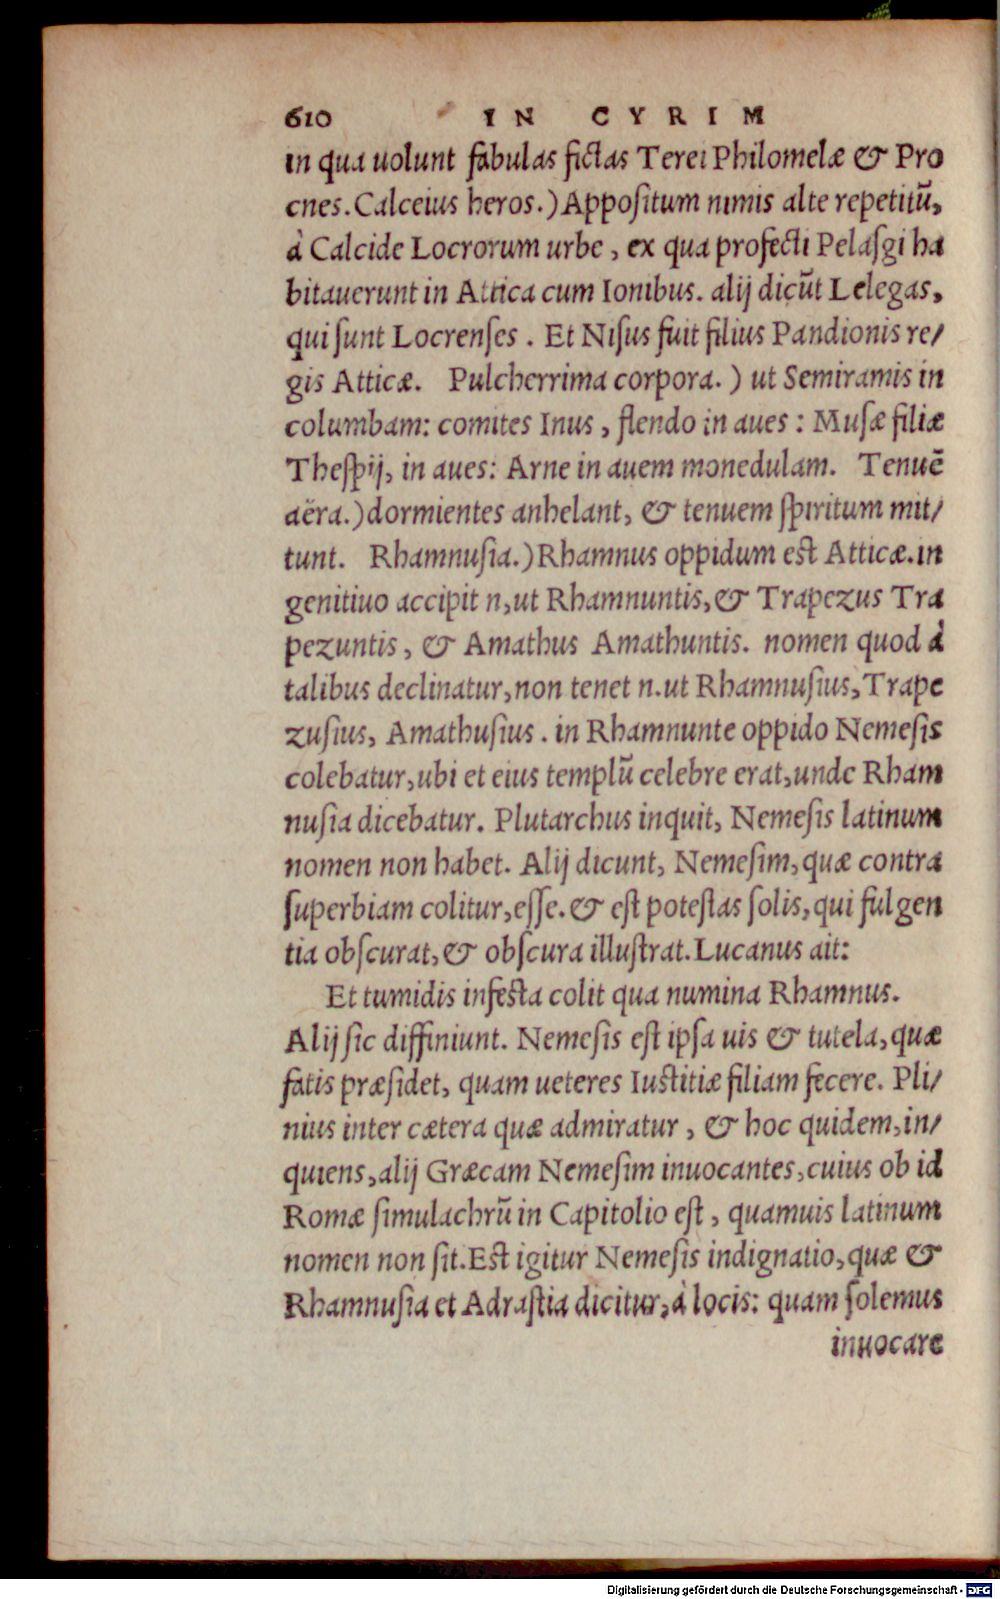 610 IN CYRIM
in qua uolunt fabulas fictas Terei Philomelæ & Pro
cnes. Calceius heros.) Appositum nimis alte repetitũ,
à Calcide Locrorum urbe, ex qua profecti Pelasgi ha
bitauerunt in Attica cum Ionibus. alij dicũt Lelegas,
qui sunt Locrenses. Et Nisus fuit filius Pandionis re/
gis Atticæ. Pulcherrima corpora.) ut Semiramis in
columbam: comites Inus, flendo in aues: Musæ filiæ
Thespij, in aues: Arne in auem monedulam. Tenuẽ
aëra.) dormientes anhelant, & tenuem spiritum mit/
tunt. Rhamnusia.) Rhamnus oppidum est Atticæ. in
genitiuo accipit n, ut Rhamnuntis, & Trapezus Tra
pezuntis, & Amathus Amathuntis. nomen quod à
talibus declinatur, non tenet n. ut Rhamnusius, Trape
zusius, Amathusius. in Rhamnunte oppido Nemesis
colebatur, ubi et eius templũ celebre erat, unde Rham
nusia dicebatur. Plutarchus inquit, Nemesis latinum
nomen non habet. Alij dicunt, Nemesim, quæ contra
superbiam colitur, esse. & est potestas solis, qui fulgen
tia obscurat, & obscura illustrat. Lucanus ait:
Et tumidis infesta colit qua numina Rhamnus.
Alij sic diffiniunt. Nemesis est ipsa uis & tutela, quæ
fatis præsidet, quam ueteres Iustitiæ filiam fecere. Pli/
nius inter cætera quæ admiratur, & hoc quidem, in/
quiens, alij Græcam Nemesim inuocantes, cuius ob id
Romæ simulachrũ in Capitolio est, quamuis latinum
nomen non sit. Est igitur Nemesis indignatio, quæ &
Rhamnusia et Adrastia dicitur, à locis: quam solemus
inuocare
Digitalisierung gefördert durch die Deutsche Forschungsgemeinschaft - DFG